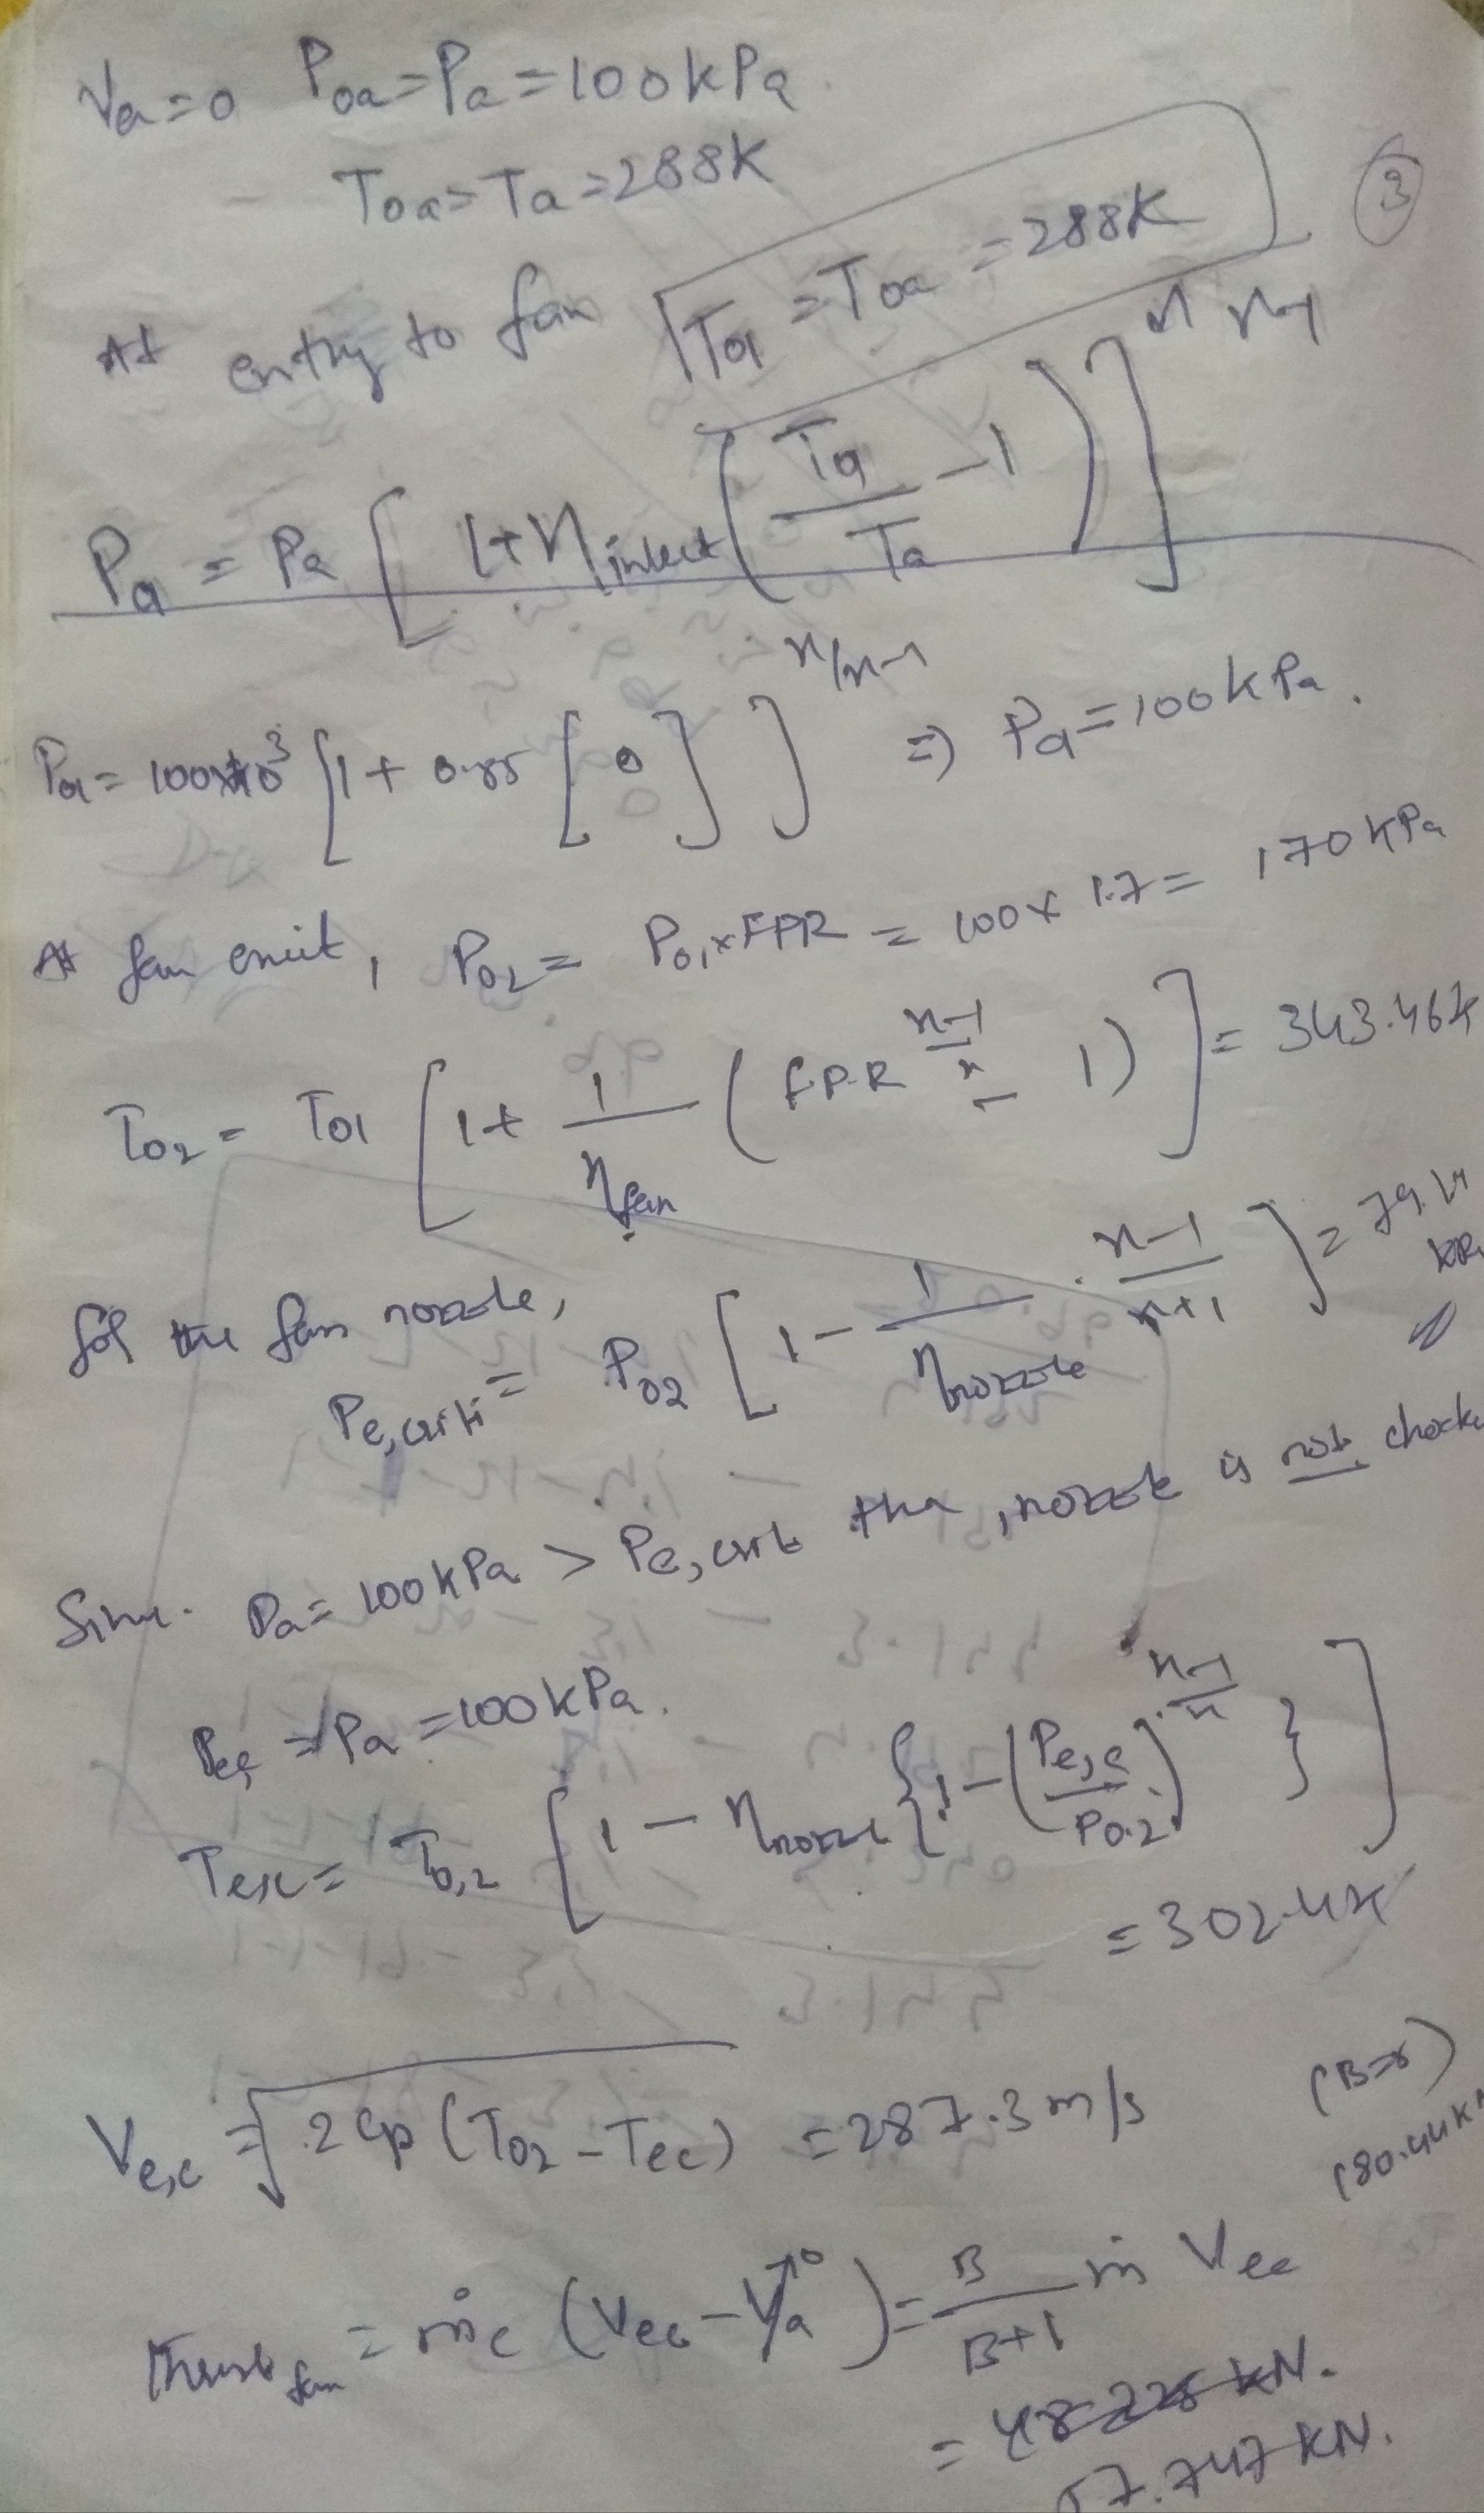 Va=0 Poa=Pa=100kPa.
Toa=Ta=288K
3
At entry to fan To1=Toa=288K
Po1 = Pa [ 1+ηinlect ( To1/Ta -1 ) ] n/n-1
Po1= 100x10^3 [1+ 0.85 [ 0 ] ] n/n-1 => Po1=100kPa.
At fan exit, Po2= Po1xFPR = 100x 1.7= 170kPa
To2= To1 [ 1+ 1/ηfan ( F.P.R^(n-1/n) - 1) ] = 343.46K
for the fan nozzle,
Pe,criti = Po2 [ 1- 1/ηnozzle . n-1/n+1 ] = 79.
Since. Pa= 100kPa > Pe,crit the ,nozzle is not choke
Pec = Pa =100kPa.
Tec= To,2 [ 1- ηnozzle { 1-(Pe,c/Po.2)^(n-1/n) } ]
=302.4K
Ve,c =√2Cp (To2-Tec) =287.3m/s
(180.44k
Thrust fan = ṁc (Vec-Va→0) = B/B+1 ṁ Vec
= 48.228 kN.
7.747KN.